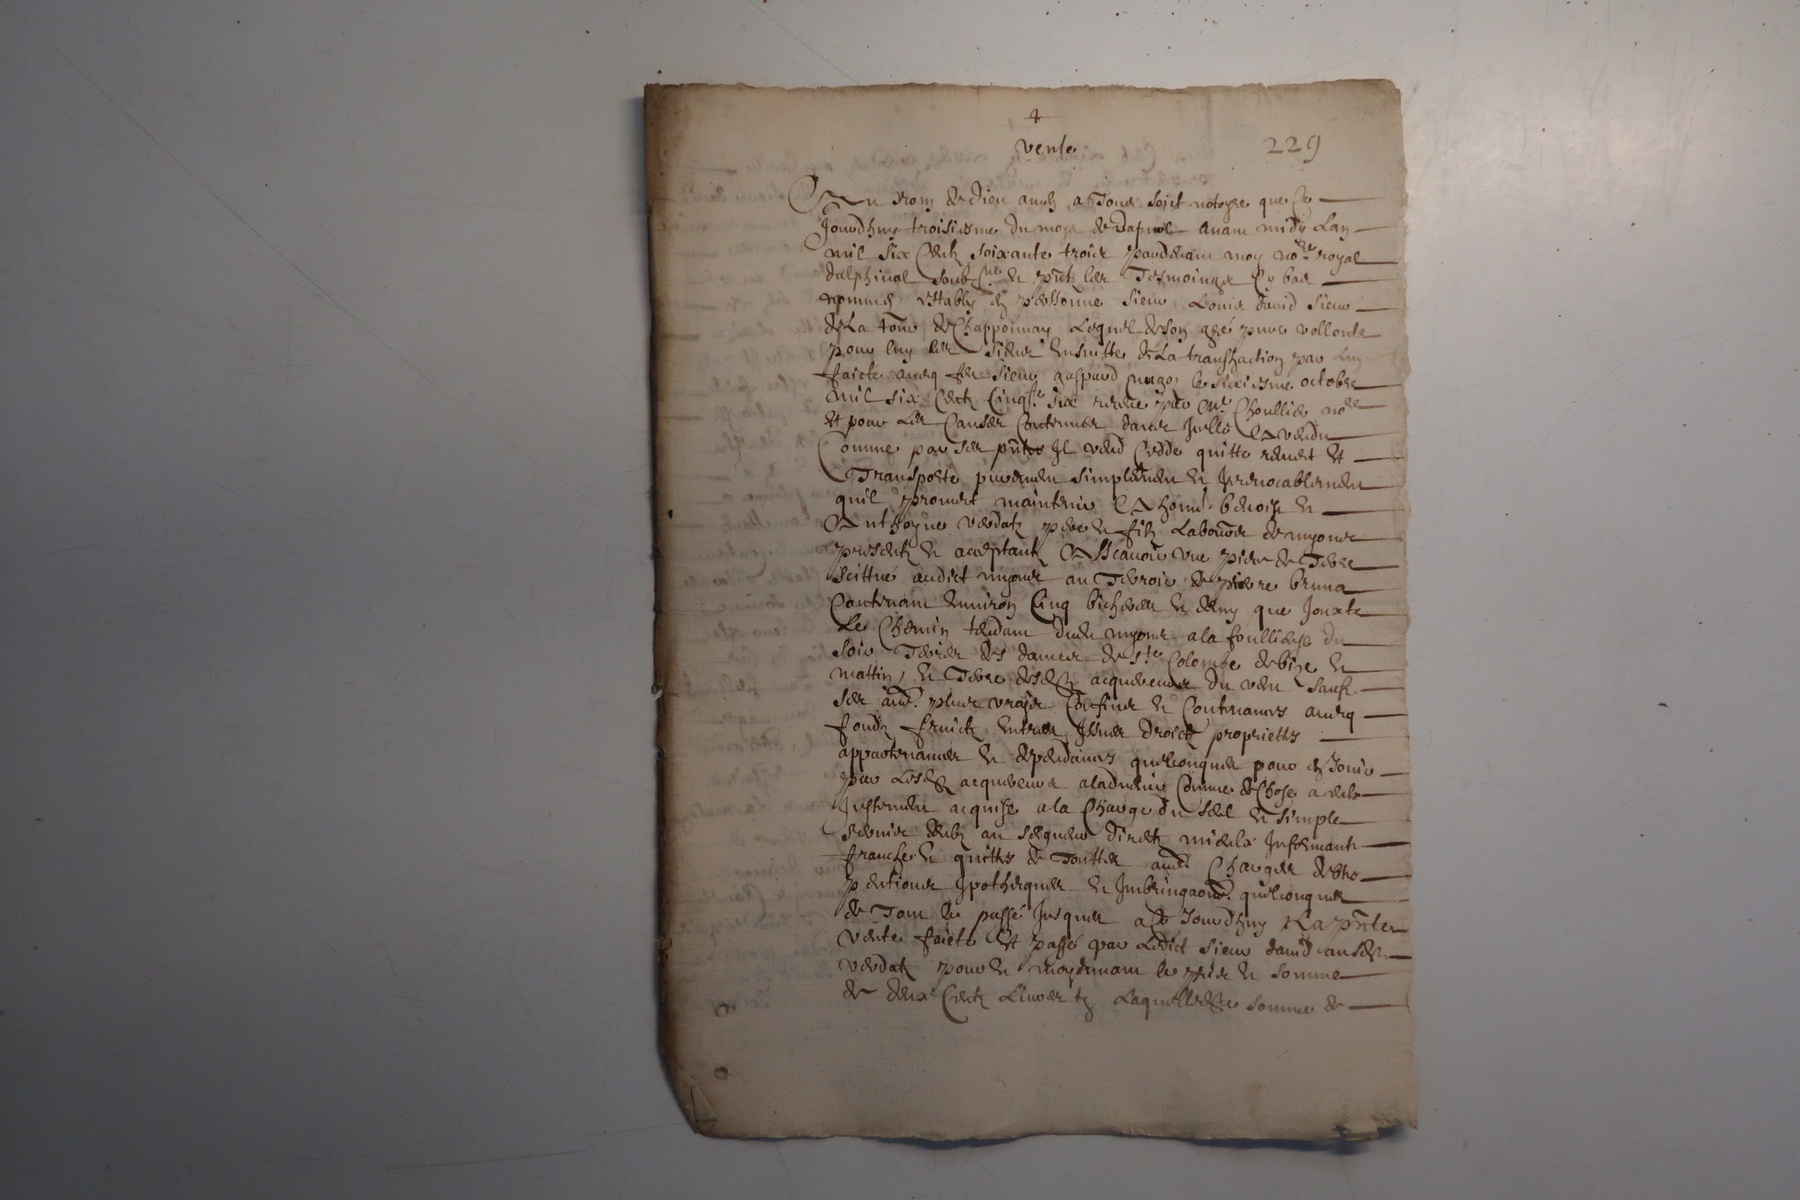 4
vente
229
Au Nom de dieu amen a Tous soict notoyre que Ce
Jourdhuy troisiesme du moys de Lan
mil six Centz soixante troise pardevant moy no.re royal
dalphinal soub.ne et pntz les Tesmoings Cy bas
nommes estably en personne Sieur Louis david Sieur
de La tour de Chapponnay Lequel de son gre pure vollonte
pour luy les siens Ensuitte de La transaction par Luy
faicte aveq feu Sieur gaspard le sixiesme octobre
mil six Centz Cinq.te six receue par M.e Choullier no.re
Et pour Les Causes Contenues dans Jcelle A vendu
Comme par ses pntes Jl vend Cedde quitte remect Et
Transporte purement simplement et Jrrevocablement
quil promet maintenir A honn. benoist et
Anthoyne verdatz pere et filz Laboureurs de myons
presentz et aceptantz Assçavoir une piece de Terre
scittue audict myons au Terroir de pierre bruna
Contenant Environ Cinq bicherees et demy que Jouxte
Le Chemin tendant dudit myons a la foulliouse du
soir Terres des dames de s.te Colombe de bize et
mattin, et Terre desdits acquereurs du vent sauf
ses au.s plus vrayes Confins et Contenances aveq
fondz fruictz entrees Jssues droictz proprietes
appartenances et dependances quelconques pour en Jouir
par Lesdits acquereurs aladvenir Comme de Chose a eulx
Justement acquise a la Charge du seel et simple
servis deubz au seigneur direct mieulx Jnfermantz
franche et quitte de Touttes au.s Charges debtes
pentions Jpotheques et quelconques
de Tout le passé Jusques a Ce Jourdhuy La pnte
vente faicte Et passé par Ledict sieur david ausdits
verdatz pour et moyenant le prix et somme
de deux Centz Livres tz Laquelledite somme de